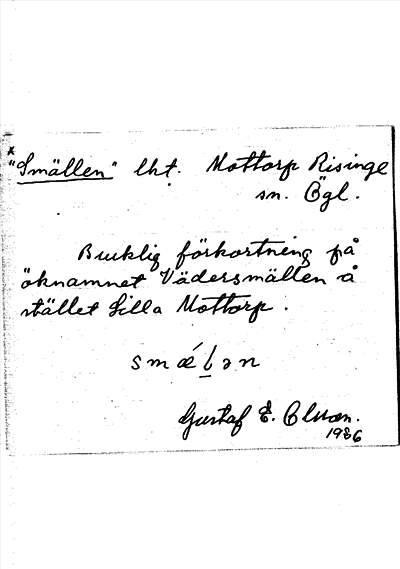 x
"Smällen" lht. Mottorp Risinge
sn. Ögl.
Bruklig förkortning på
öknamnet Vädersmällen å
stället Lilla Mottorp.
smǽl̲ən
Gustaf E. Olsson.
1986